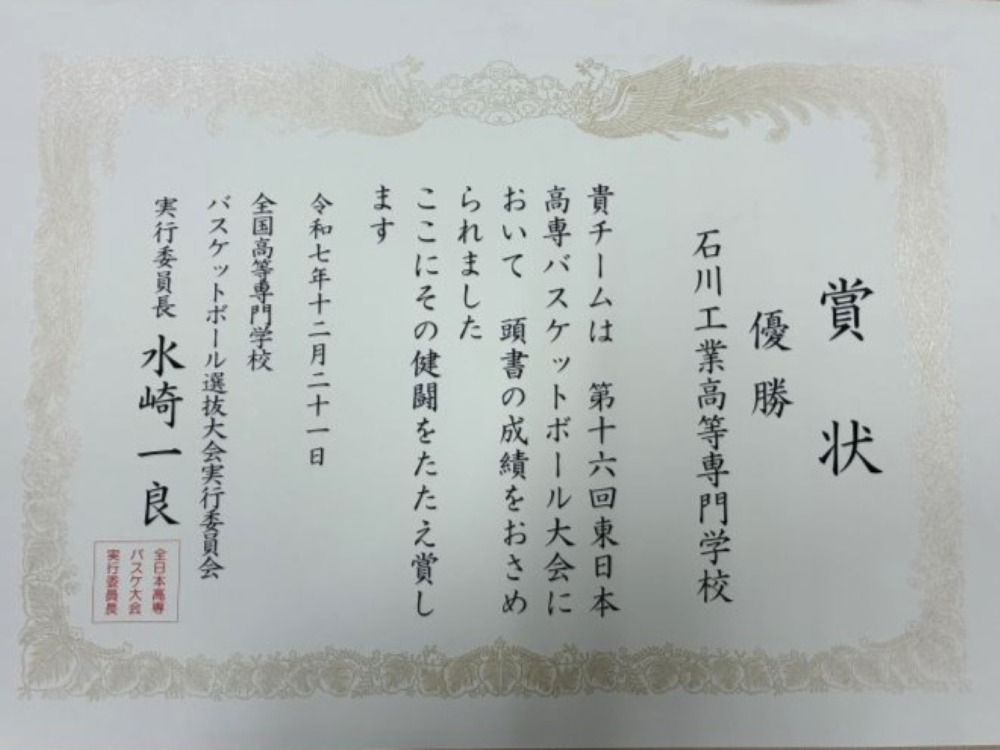 賞状
優勝
石川工業高等専門学校
貴チームは 第十六回東日本
高専バスケットボール大会に
おいて 頭書の成績をおさめ
られました
ここにその健闘をたたえ賞し
ます
令和七年十二月二十一日
全国高等専門学校
バスケットボール選抜大会実行委員会
実行委員長 水崎一良
全日本高専
バスケ大会
実行委員長